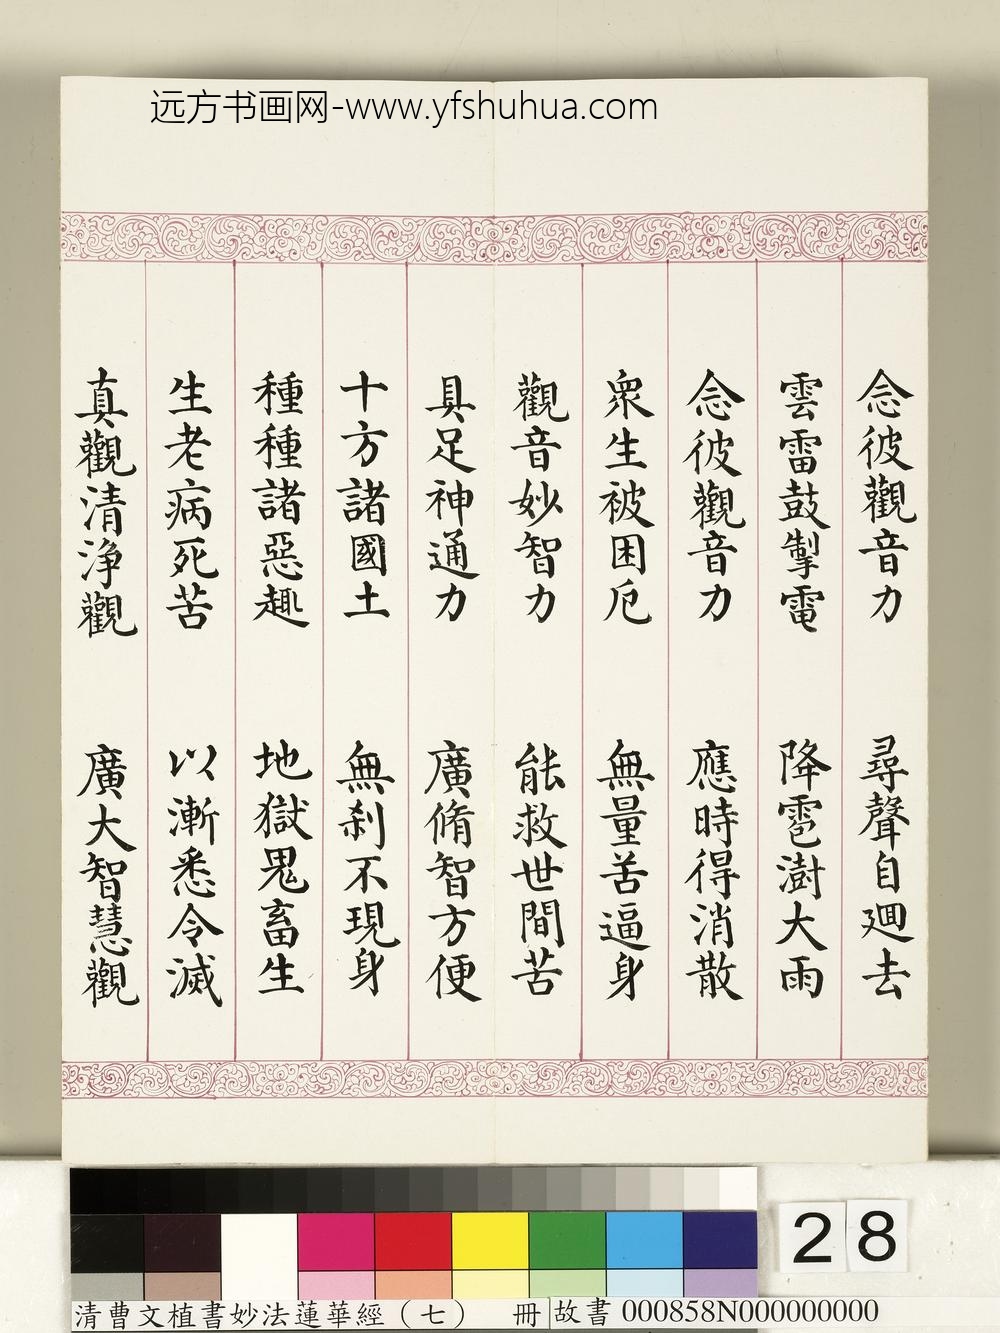 远方书画网-www.yfshuhua.com
念彼觀音力 尋聲自迴去
雲雷鼓掣電 降雹澍大雨
念彼觀音力 應時得消散
衆生被困厄 無量苦逼身
觀音妙智力 能救世間苦
具足神通力 廣脩智方便
十方諸國土 無刹不現身
種種諸惡趣 地獄鬼畜生
生老病死苦 以漸悉令滅
真觀清淨觀 廣大智慧觀
28
清曹文植書妙法蓮華經（七） 冊 故書 000858N000000000